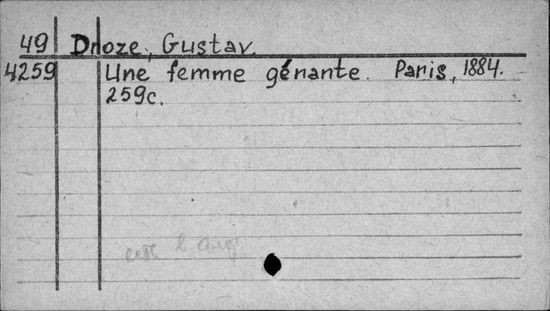 49 Droze, Gustav.
4259 Une femme gênante. Paris, 1884.
259c.